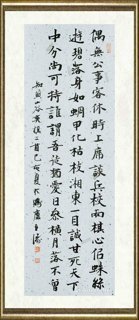 偶無公事客休時上席談兵校兩棋心似蛛絲
遊碧落身如蜩甲化枯枝湘東一目誠甘死天下
中分尚可持誰謂吾徒猶愛日參橫月落不